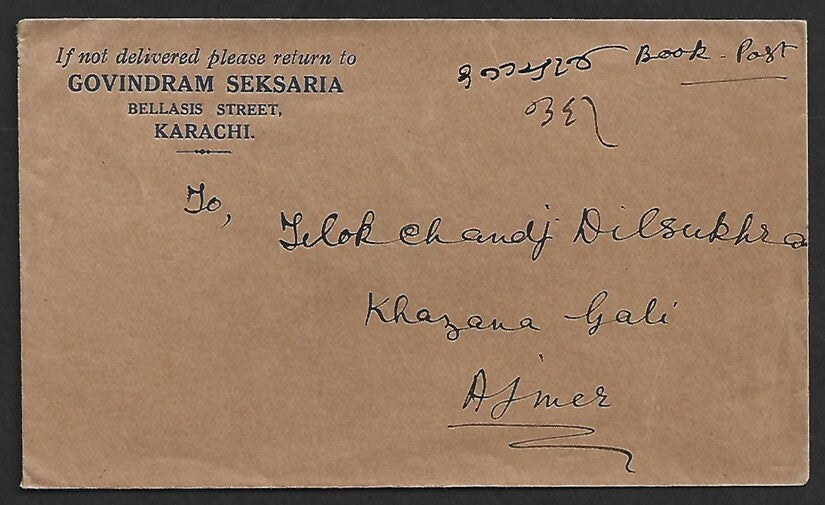 If not delivered please return to
GOVINDRAM SEKSARIA
BELLASIS STREET,
KARACHI.
Book - Post
To,
Telokchandj Dilsukhra
Khazana Gali
Ajmer